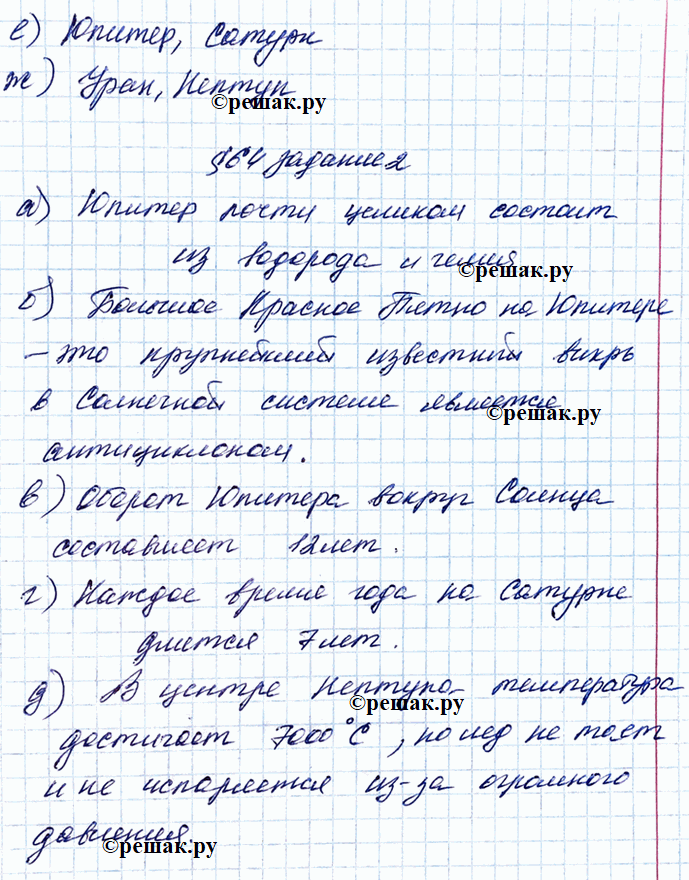 е) Юпитер, Сатурн
ж) Уран, Нептун
©решак.ру
§64 задание 2
а) Юпитер почти целиком состоит
из водорода и гелия
©решак.ру
б) Большое Красное Пятно на Юпитере
– это крупнейший известный вихрь
в Солнечной системе является
©решак.ру
антициклоном.
в) Оборот Юпитера вокруг Солнца
составляет 12 лет.
г) Каждое время года на Сатурне
длится 7 лет.
д) В центре Нептуна температура
©решак.ру
достигает 7000°С, но лед не тает
и не испаряется из-за огромного
давления.
©решак.ру